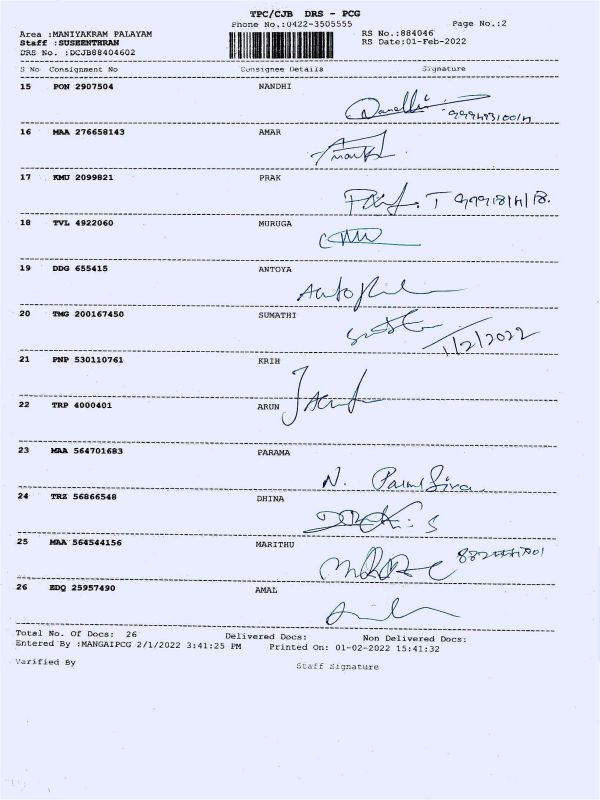 TPC/CJB DRS - PCG
Phone No.:0422-3505555 Page No.:2
Area :MANIYAKRAM PALAYAM RS No.:884046
Staff :SUSEENTHRAN RS Date:01-Feb-2022
DRS No. :DCJB88404602
S No Consignment No Consignee Details Signature
15 PON 2907504 NANDHI
16 MAA 276658143 AMAR
17 KMU 2099821 PRAK
18 TVL 4922060 MURUGA
19 DDG 655415 ANTOYA
20 TMG 200167450 SUMATHI
1/2/2022
21 PNP 530110761 KRIH
22 TRP 4000401 ARUN
23 MAA 564701683 PARAMA
N.
24 TRZ 56866548 DHINA
25 MAA 564544156 MARITHU
26 EDQ 25957490 AMAL
Total No. Of Docs: 26 Delivered Docs: Non Delivered Docs:
Entered By :MANGAIPCG 2/1/2022 3:41:25 PM Printed On: 01-02-2022 15:41:32
Varified By Staff Signature